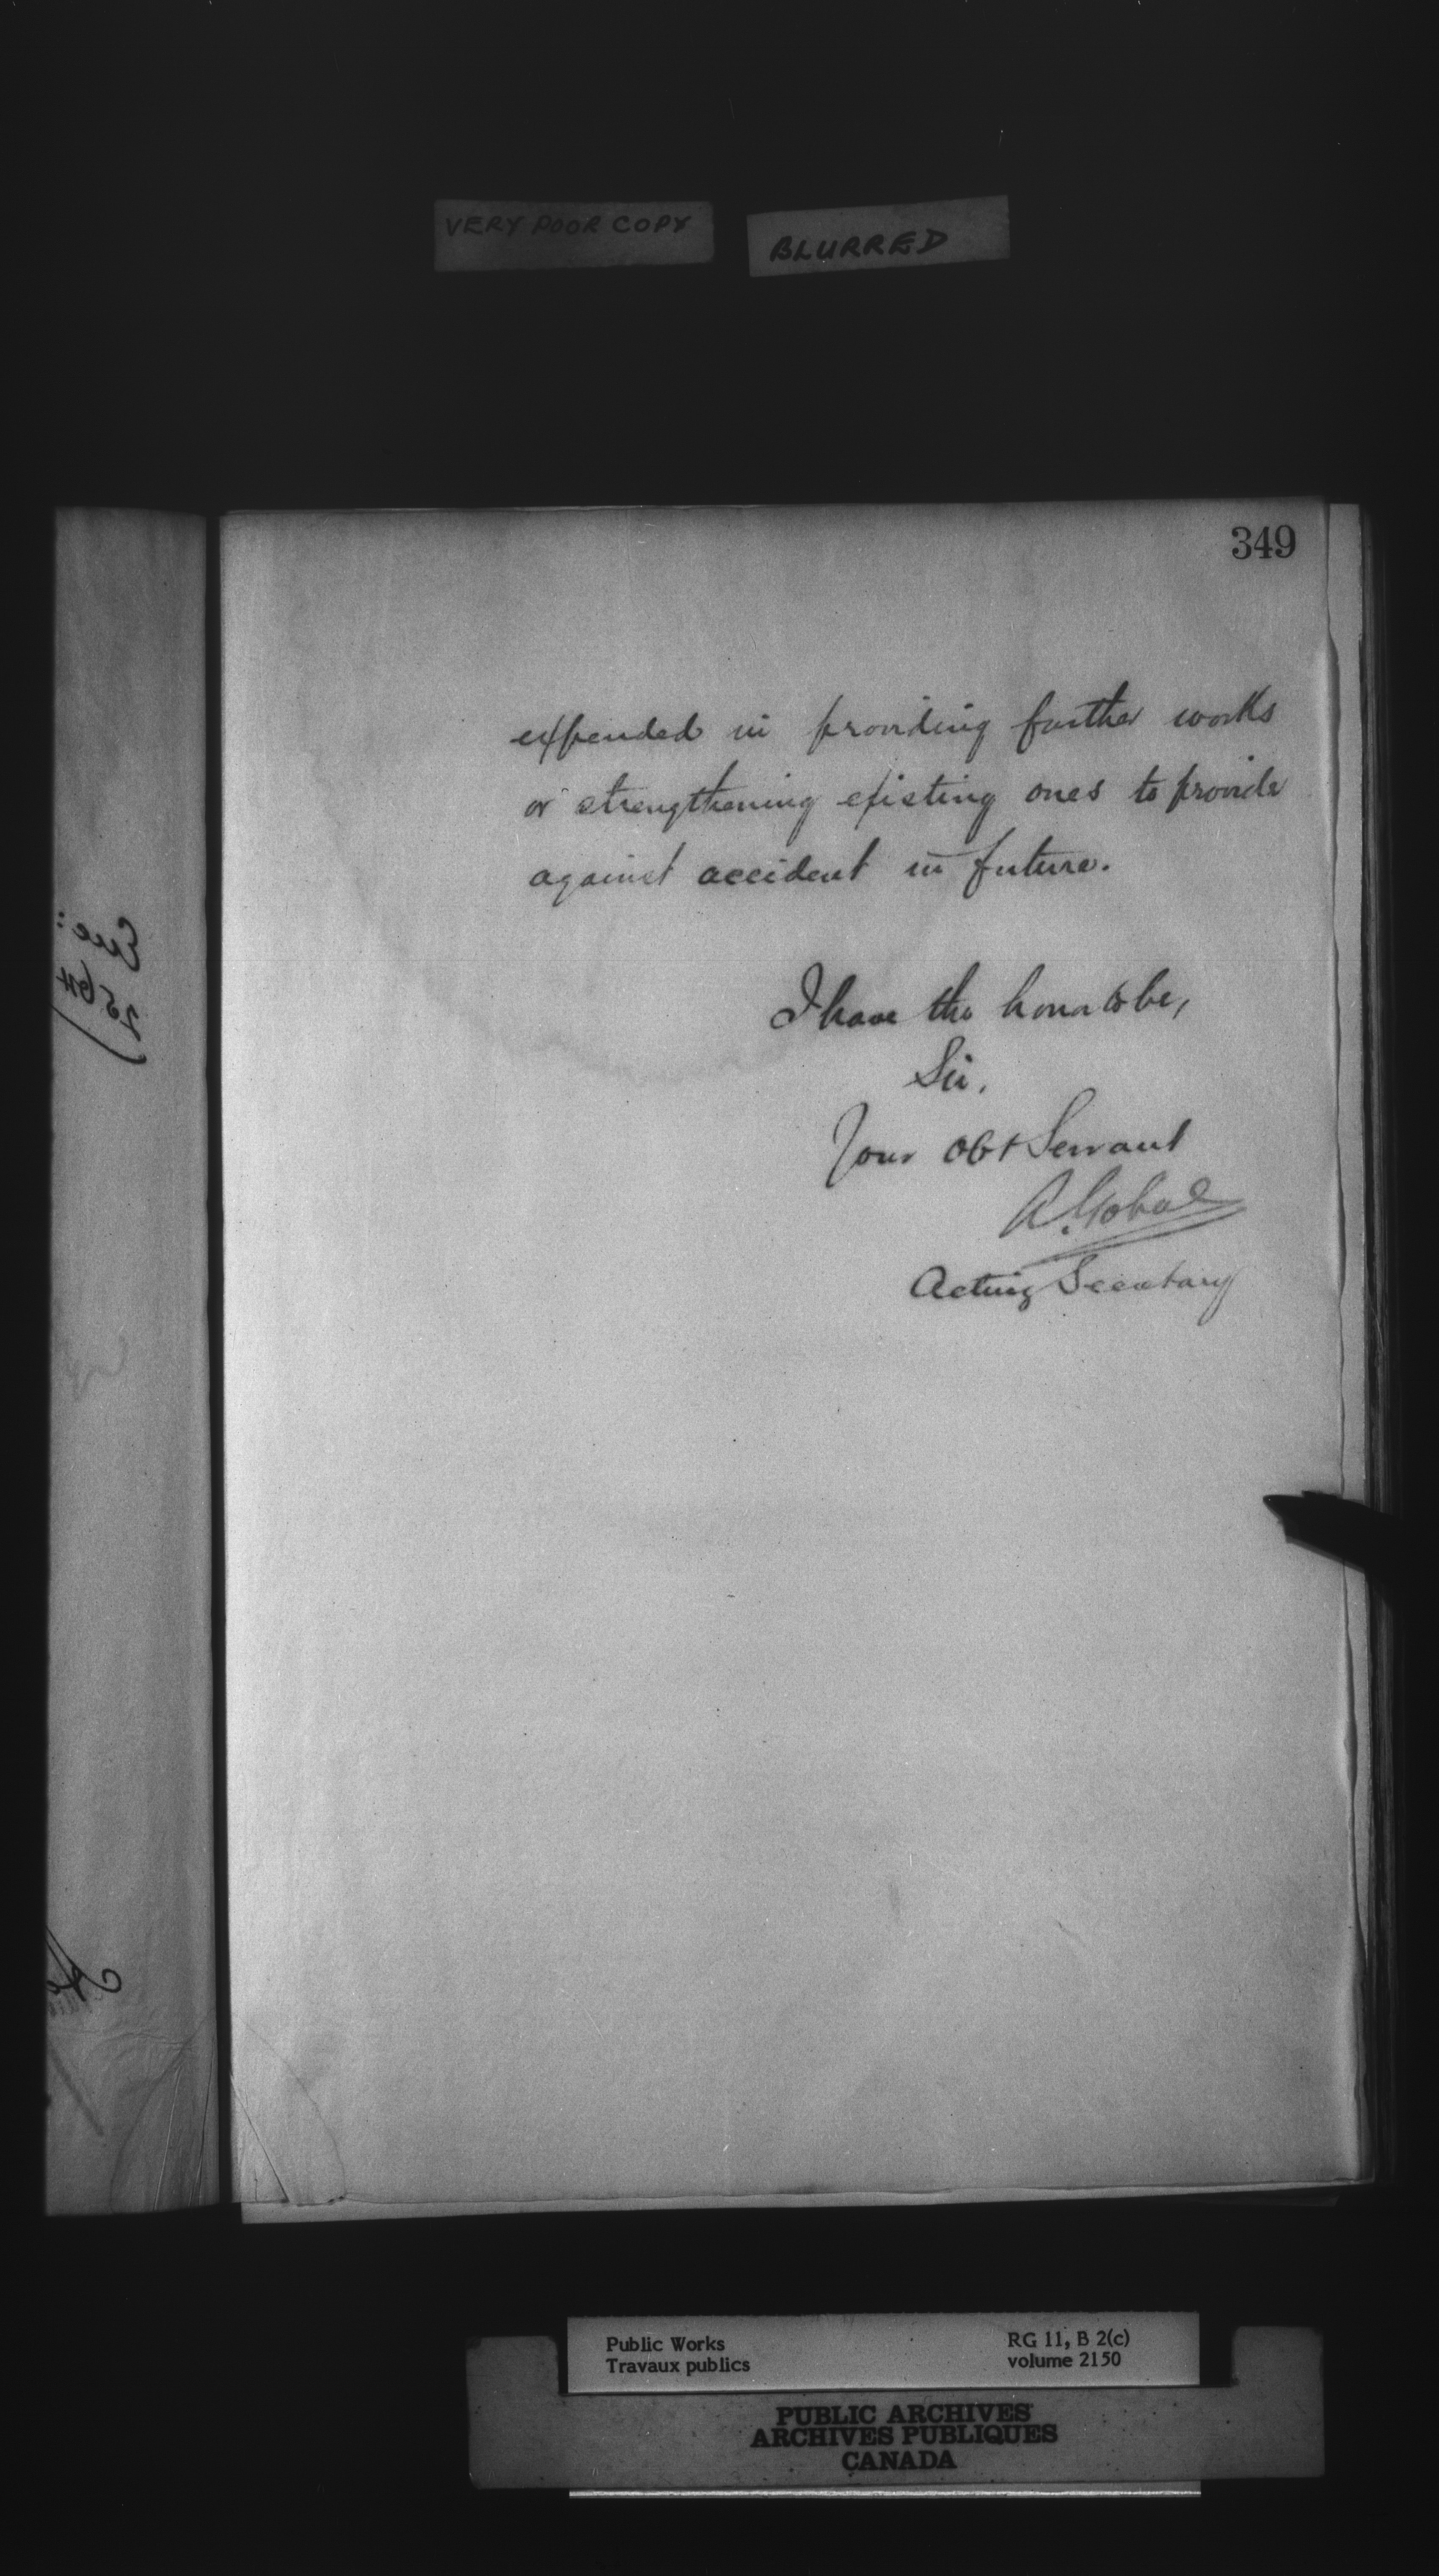 VERY POOR COPY
BLURRED
349
expended in providing further works
or strengthening existing ones to provide
against accident in future.
I have the honor to be,
Sir,
Your Obt Servant
A. Gobeil
Acting Secretary
Enc:
Public Works
Travaux publics
RG 11, B 2(c)
volume 2150
PUBLIC ARCHIVES
ARCHIVES PUBLIQUES
CANADA